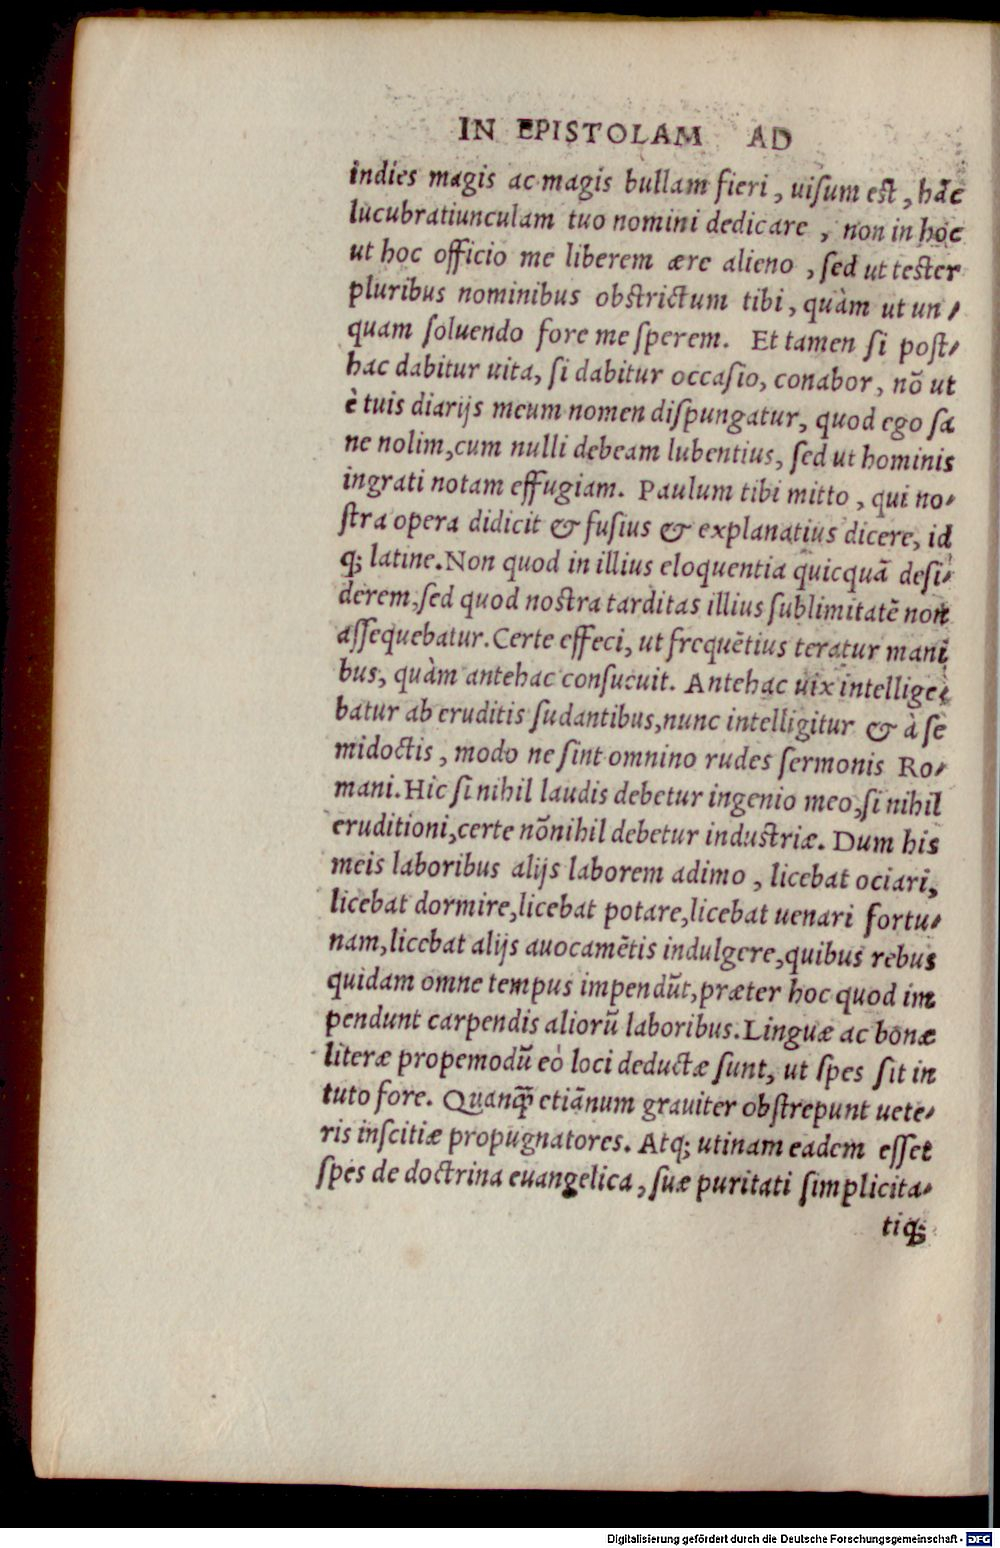 IN EPISTOLAM AD
indies magis ac magis bullam fieri, uiſum est, hāc
lucubratiunculam tuo nomini dedicare, non in hoc
ut hoc officio me liberem ære alieno, ſed ut tester
pluribus nominibus obstrictum tibi, quàm ut un-
quam ſoluendo fore me ſperem. Et tamen ſi poſt-
hac dabitur uita, ſi dabitur occaſio, conabor, nō ut
è tuis diarijs meum nomen diſpungatur, quod ego ſa
ne nolim, cum nulli debeam lubentius, ſed ut hominis
ingrati notam effugiam. Paulum tibi mitto, qui no-
ſtra opera didicit & fuſius & explanatius dicere, id
q; latine. Non quod in illius eloquentia quicquā deſi-
derem, ſed quod noſtra tarditas illius ſublimitatē non
aſſequebatur. Certe effeci, ut frequētius teratur mani
bus, quàm antehac conſueuit. Antehac uix intellige-
batur ab eruditis ſudantibus, nunc intelligitur & à ſe
midoctis, modo ne ſint omnino rudes ſermonis Ro-
mani. Hic ſi nihil laudis debetur ingenio meo, ſi nihil
eruditioni, certe nōnihil debetur induſtriæ. Dum his
meis laboribus alijs laborem adimo, licebat ociari,
licebat dormire, licebat potare, licebat uenari fortu-
nam, licebat alijs auocamētis indulgere, quibus rebus
quidam omne tempus impendūt, præter hoc quod im
pendunt carpendis aliorū laboribus. Linguæ ac bonæ
literæ propemodū eò loci deductæ ſunt, ut ſpes ſit in
tuto fore. Quanq̄ etiānum grauiter obſtrepunt uete-
ris inſcitiæ propugnatores. Atq; utinam eadem eſſet
ſpes de doctrina euangelica, ſuæ puritati ſimplicita-
tiq;
Digitalisierung gefördert durch die Deutsche Forschungsgemeinschaft - DFG